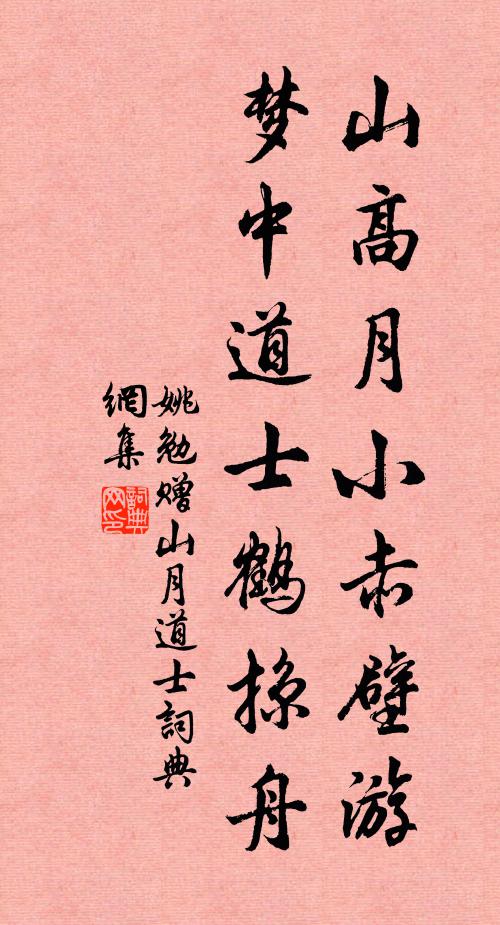 山高月小赤壁游
梦中道士鹤掠舟
姚勉赠山月道士詞典
網集
詞典
网印